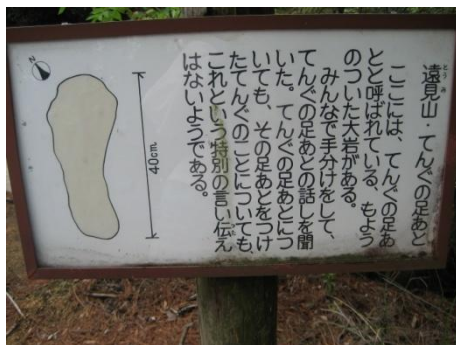 遠見山・てんぐの足あと
とうみ
ここには、てんぐの足あ
とと呼ばれている、もよう
のついた大岩がある。
みんなで手分けをして、
てんぐの足あとの話しを聞
いた。てんぐの足あとにつ
いても、その足あとをつけ
たてんぐのことについても、
これという特別の言い伝え
はないようである。
40cm
N